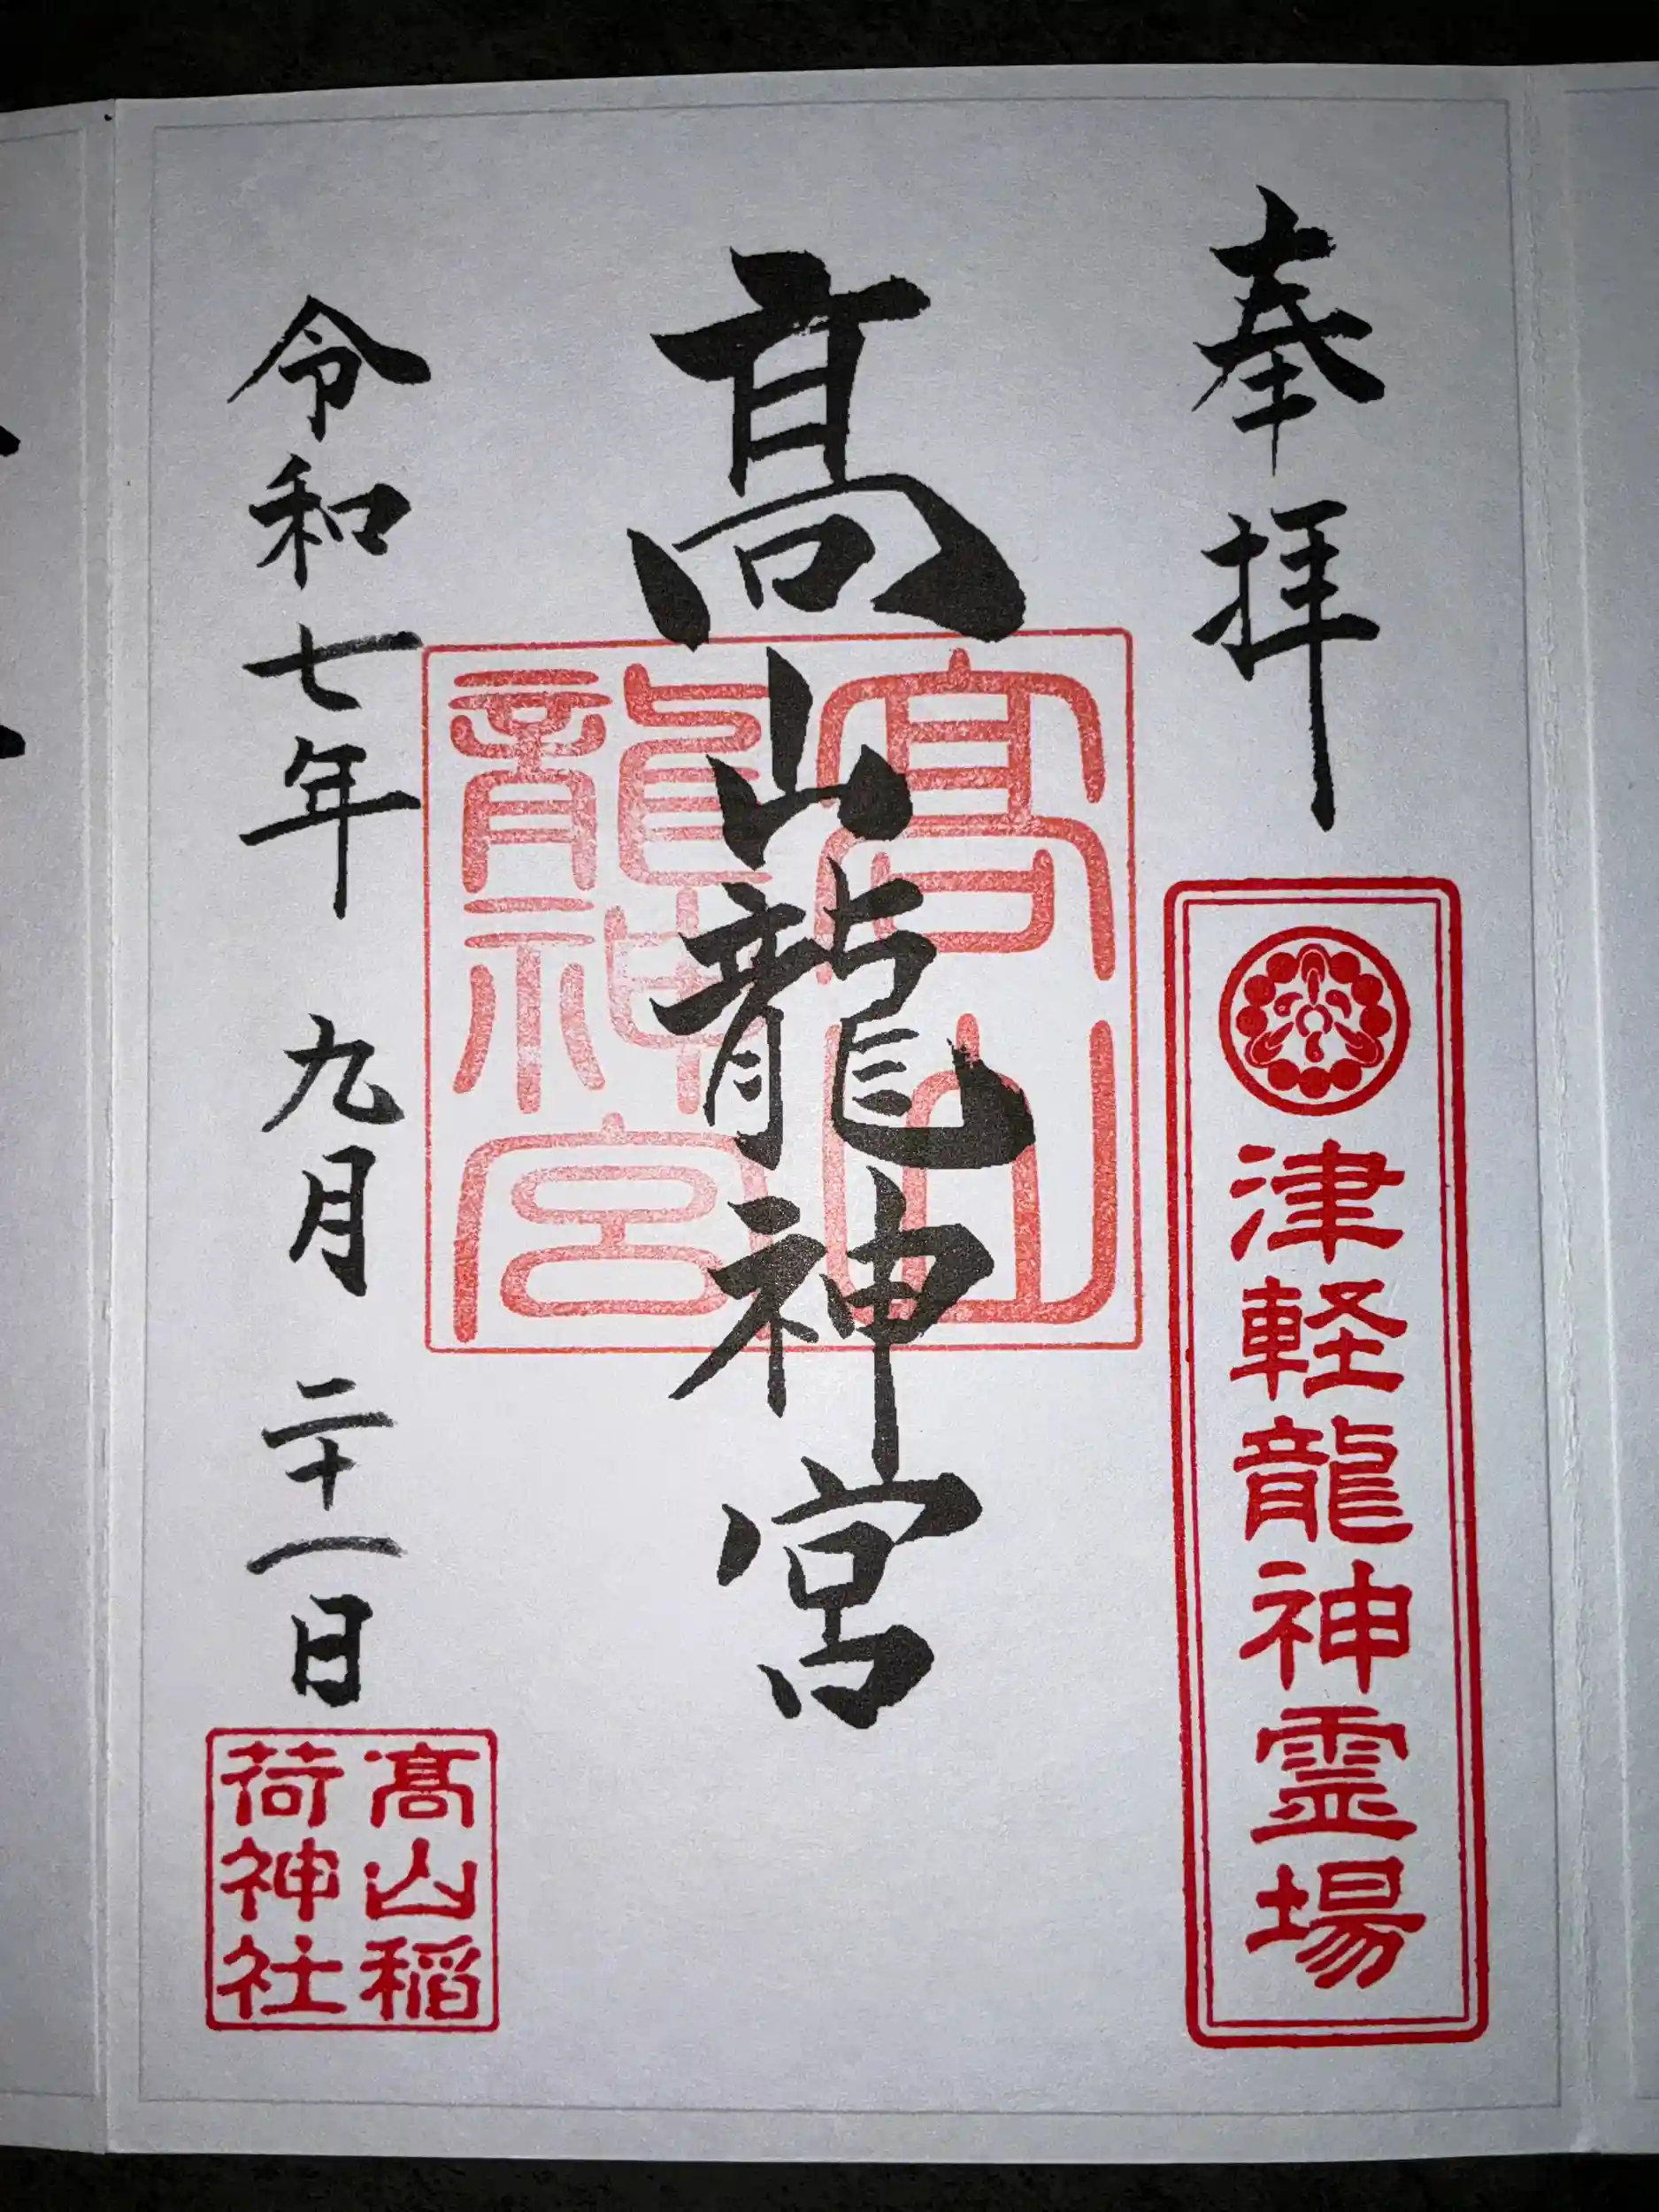 奉拝
津軽龍神霊場
髙山龍神宮
髙山
龍神宮
令和七年 九月 二十一日
髙山稲
荷神社